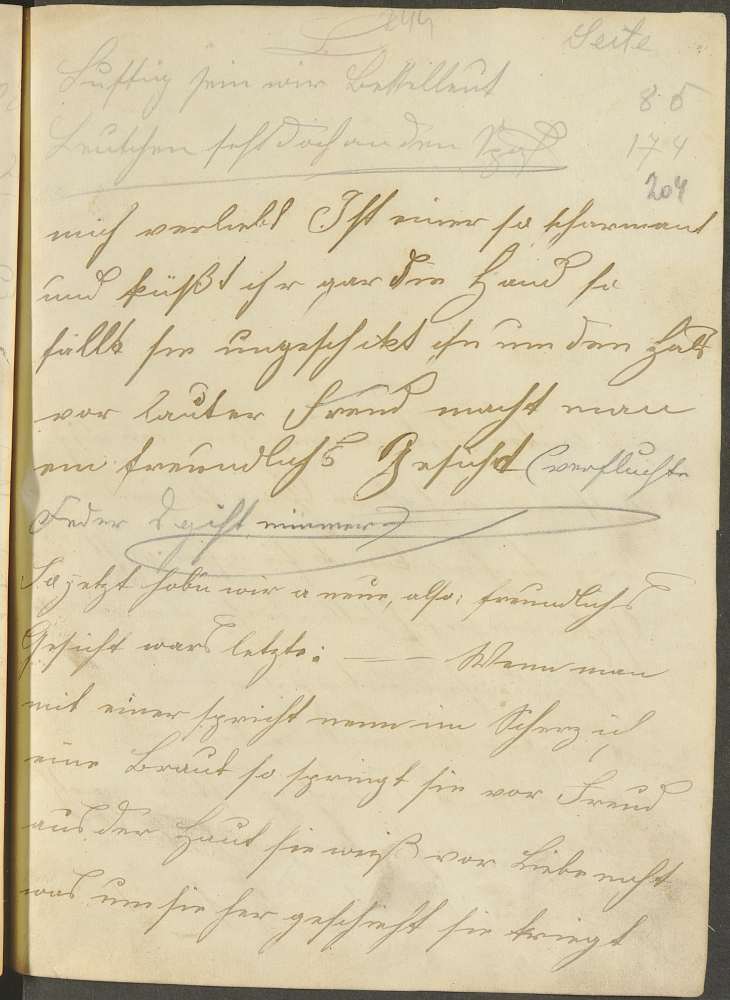 244 Seite
Lustig sein wir Bettelleut 85
Leutchen seht doch an den 174
204
mich verliebt Ist einer so scharmant
und küßt ihr gar die Hand so
fällt sie ungeschikt ihn um den Hals
vor lauter Freud macht man
ein freundlichs Gesicht (verfluchte
Feder d gift nimmer)
So jetzt hobn wir a neue, also: freundlichs
Gesicht wars letzte: — — Wenn man
mit einer spricht nenn im Scherz ich
eine Braut so springt sie vor Freud
aus der Haut sie weiß vor Liebe nicht
was um sie her geschieht sie kriegt